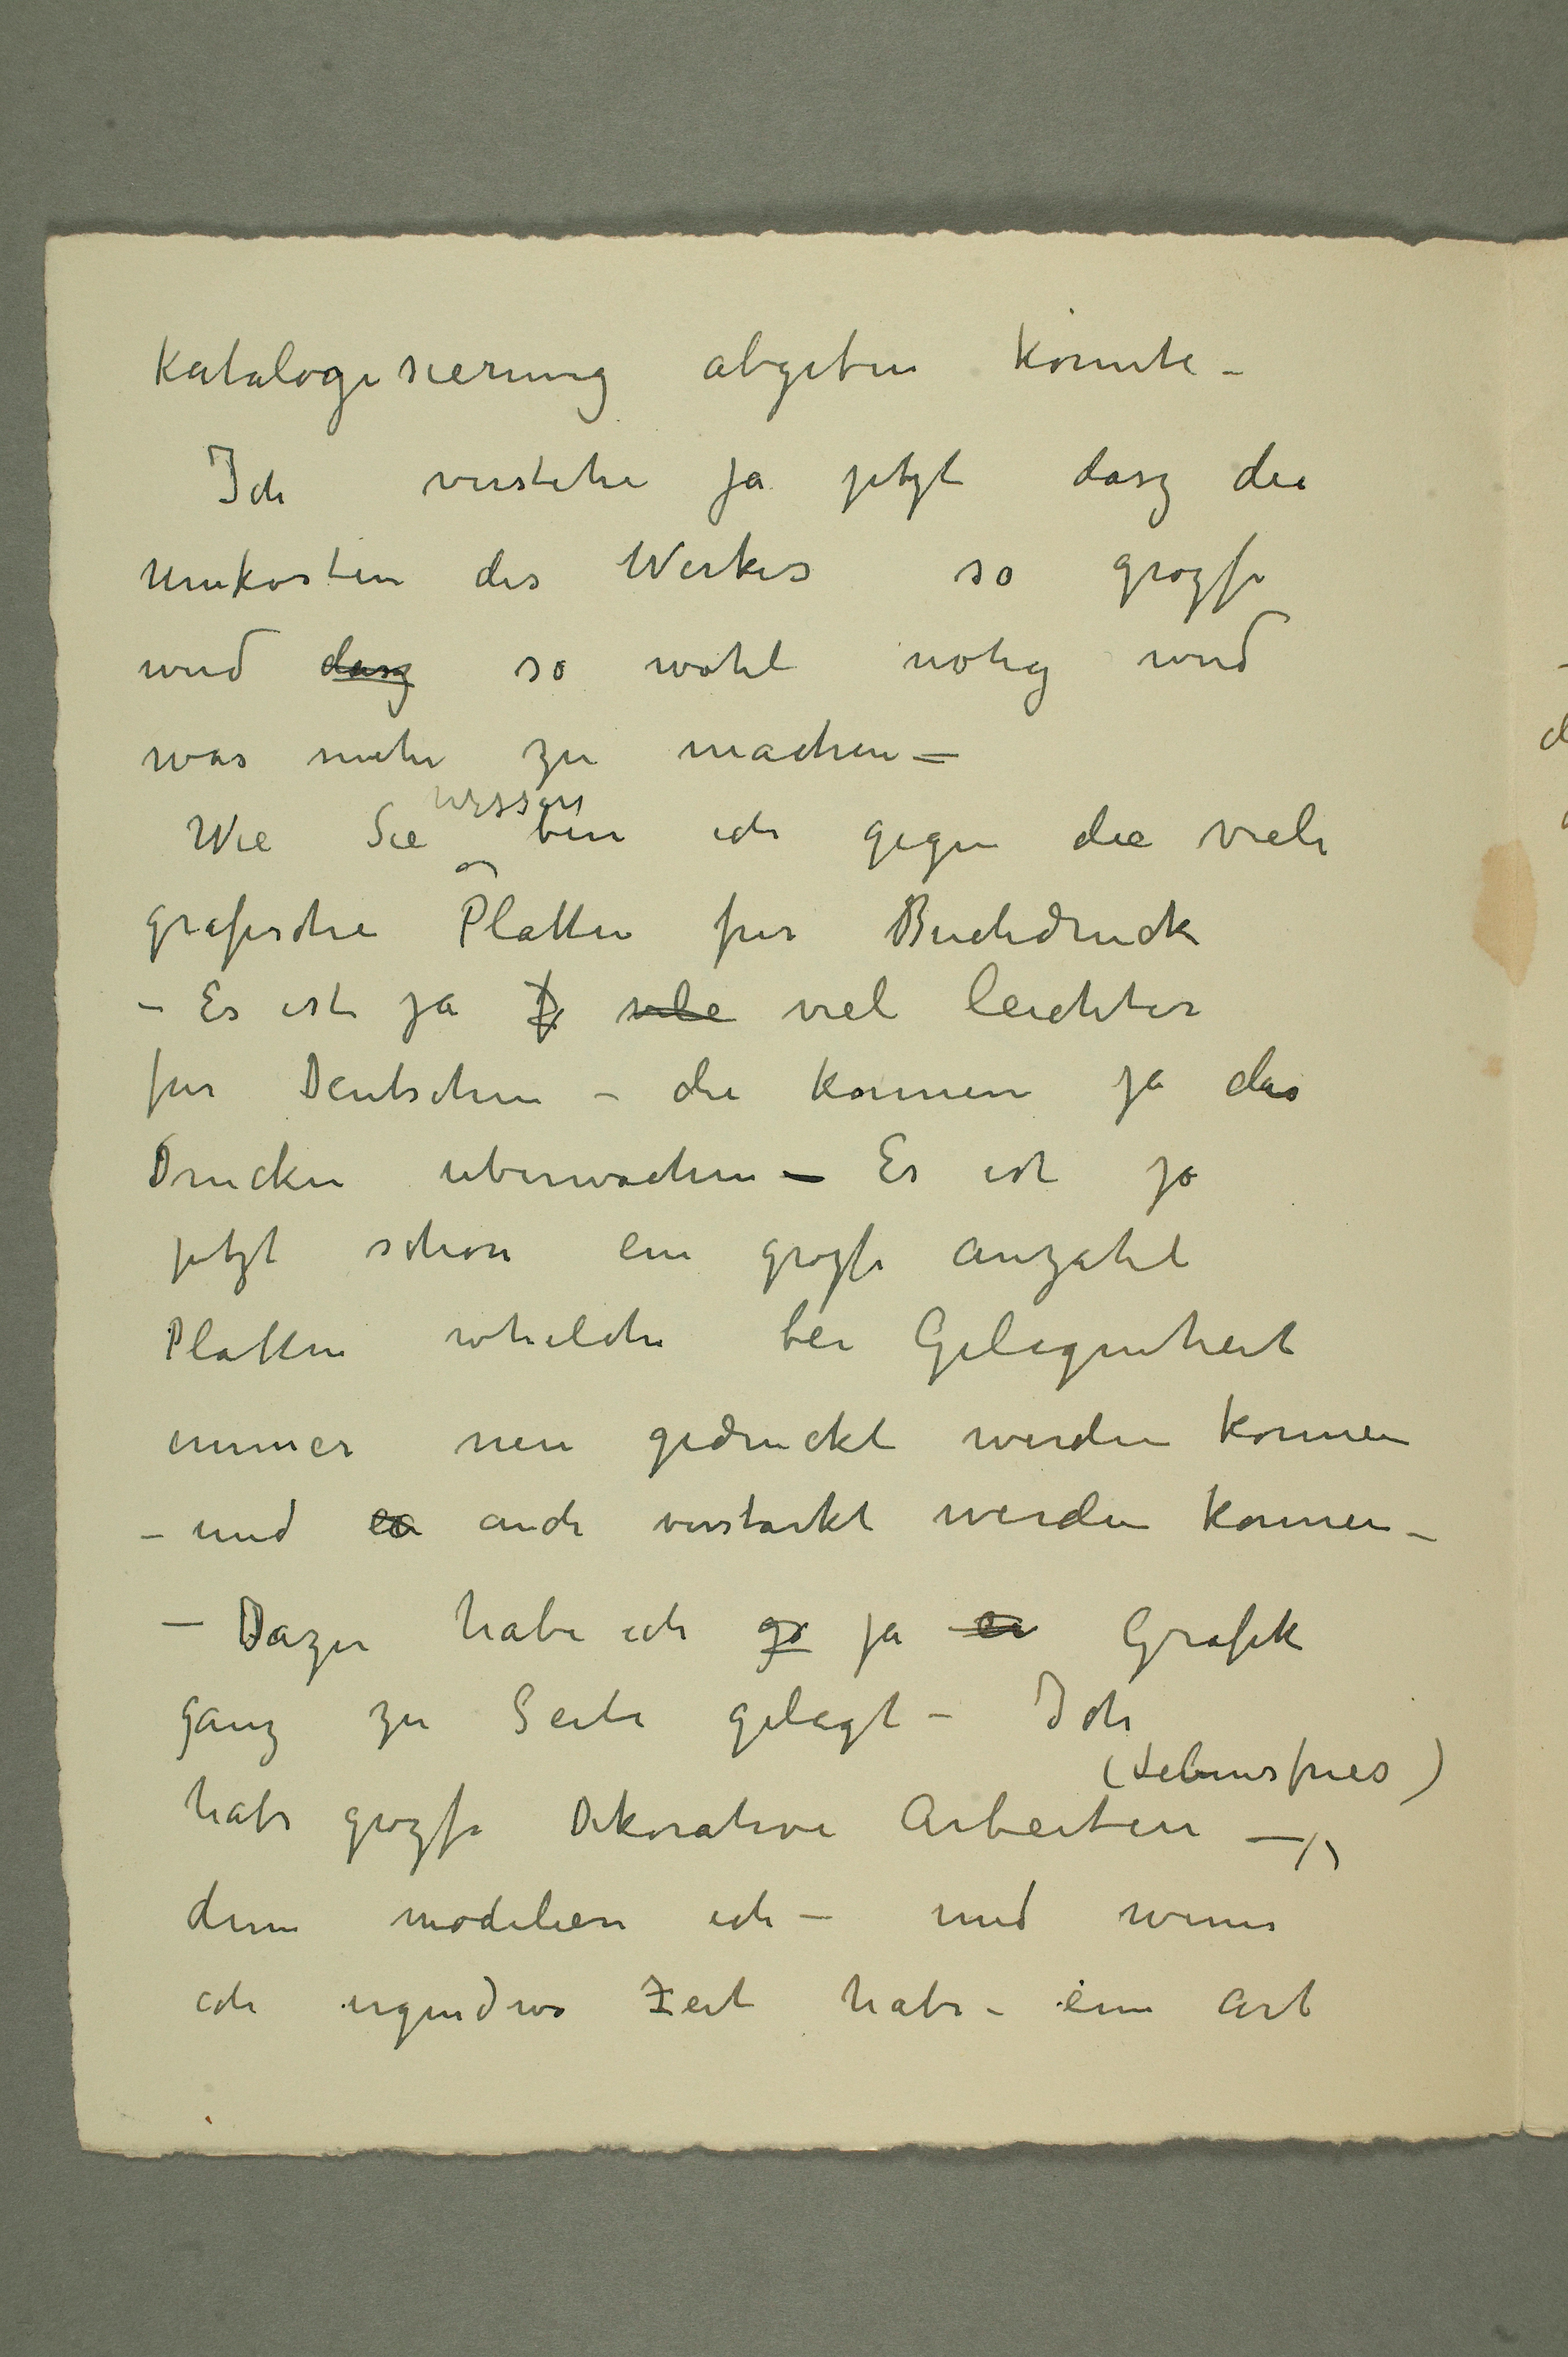 Katalogisierung abgeben könnte –
Ich verstehe ja jetzt dasz die
Unkosten des Werkes so grozse
wird dasz so wohl notig wird
was mehr zu machen –
wissen
Wie Sie bin ich gegen die viele
grafische Platten fur Buchdruck
– Es ist ja D vile viel leichter
fur Deutschen – die konnen ja das
Drucken uberwachen – Es ist ja
jetzt schon ein grozse anzahl
Platten whelche bei Gelegenheit
immer neu gedruckt werden konnen
– und es auch verstarkt werden konnen –
– Dazu habe ich ja Grafik
ganz zu Seite gelegt – Ich
(Lebensfries)
habe grozse Dekorative Arbeiten –
denn modelien ich – und wenn
ich irgendwo Zeit habe – ein art